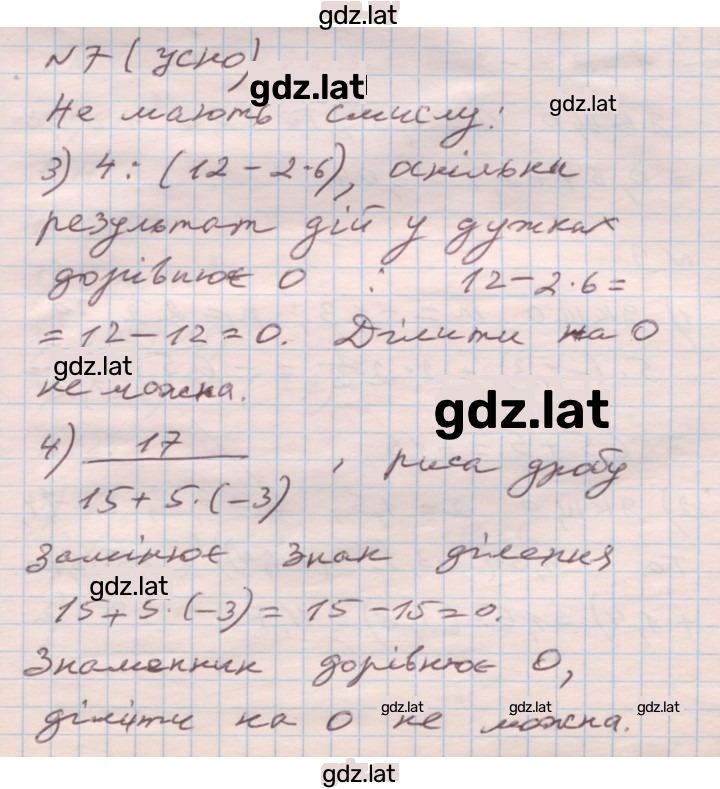 gdz.lat
№7 (усно)
gdz.lat
gdz.lat
Не мають смислу:
3) 4 : (12 - 2·6), оскільки
результат дій у дужках
дорівнює 0 : 12 - 2·6 =
= 12 - 12 = 0. Ділити на 0
gdz.lat
не можна.
gdz.lat
4) 17
, риса дробу
15 + 5·(-3)
замінює знак ділення
gdz.lat
15 + 5·(-3) = 15 - 15 = 0.
Знаменник дорівнює 0,
ділити на 0 не можна.
gdz.lat gdz.lat gdz.lat
gdz.lat